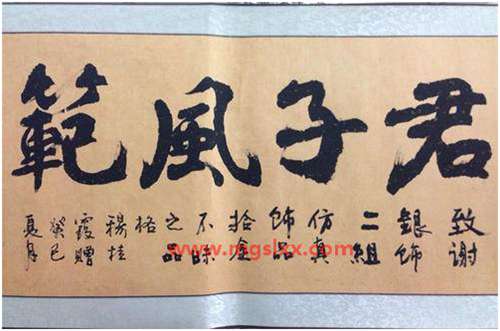 君子風範
致谢
銀飾
二組
仿真
飾品
拾金
不昧
之品
格
楊桂
霞贈
癸巳
夏月
www.mgslxx.com